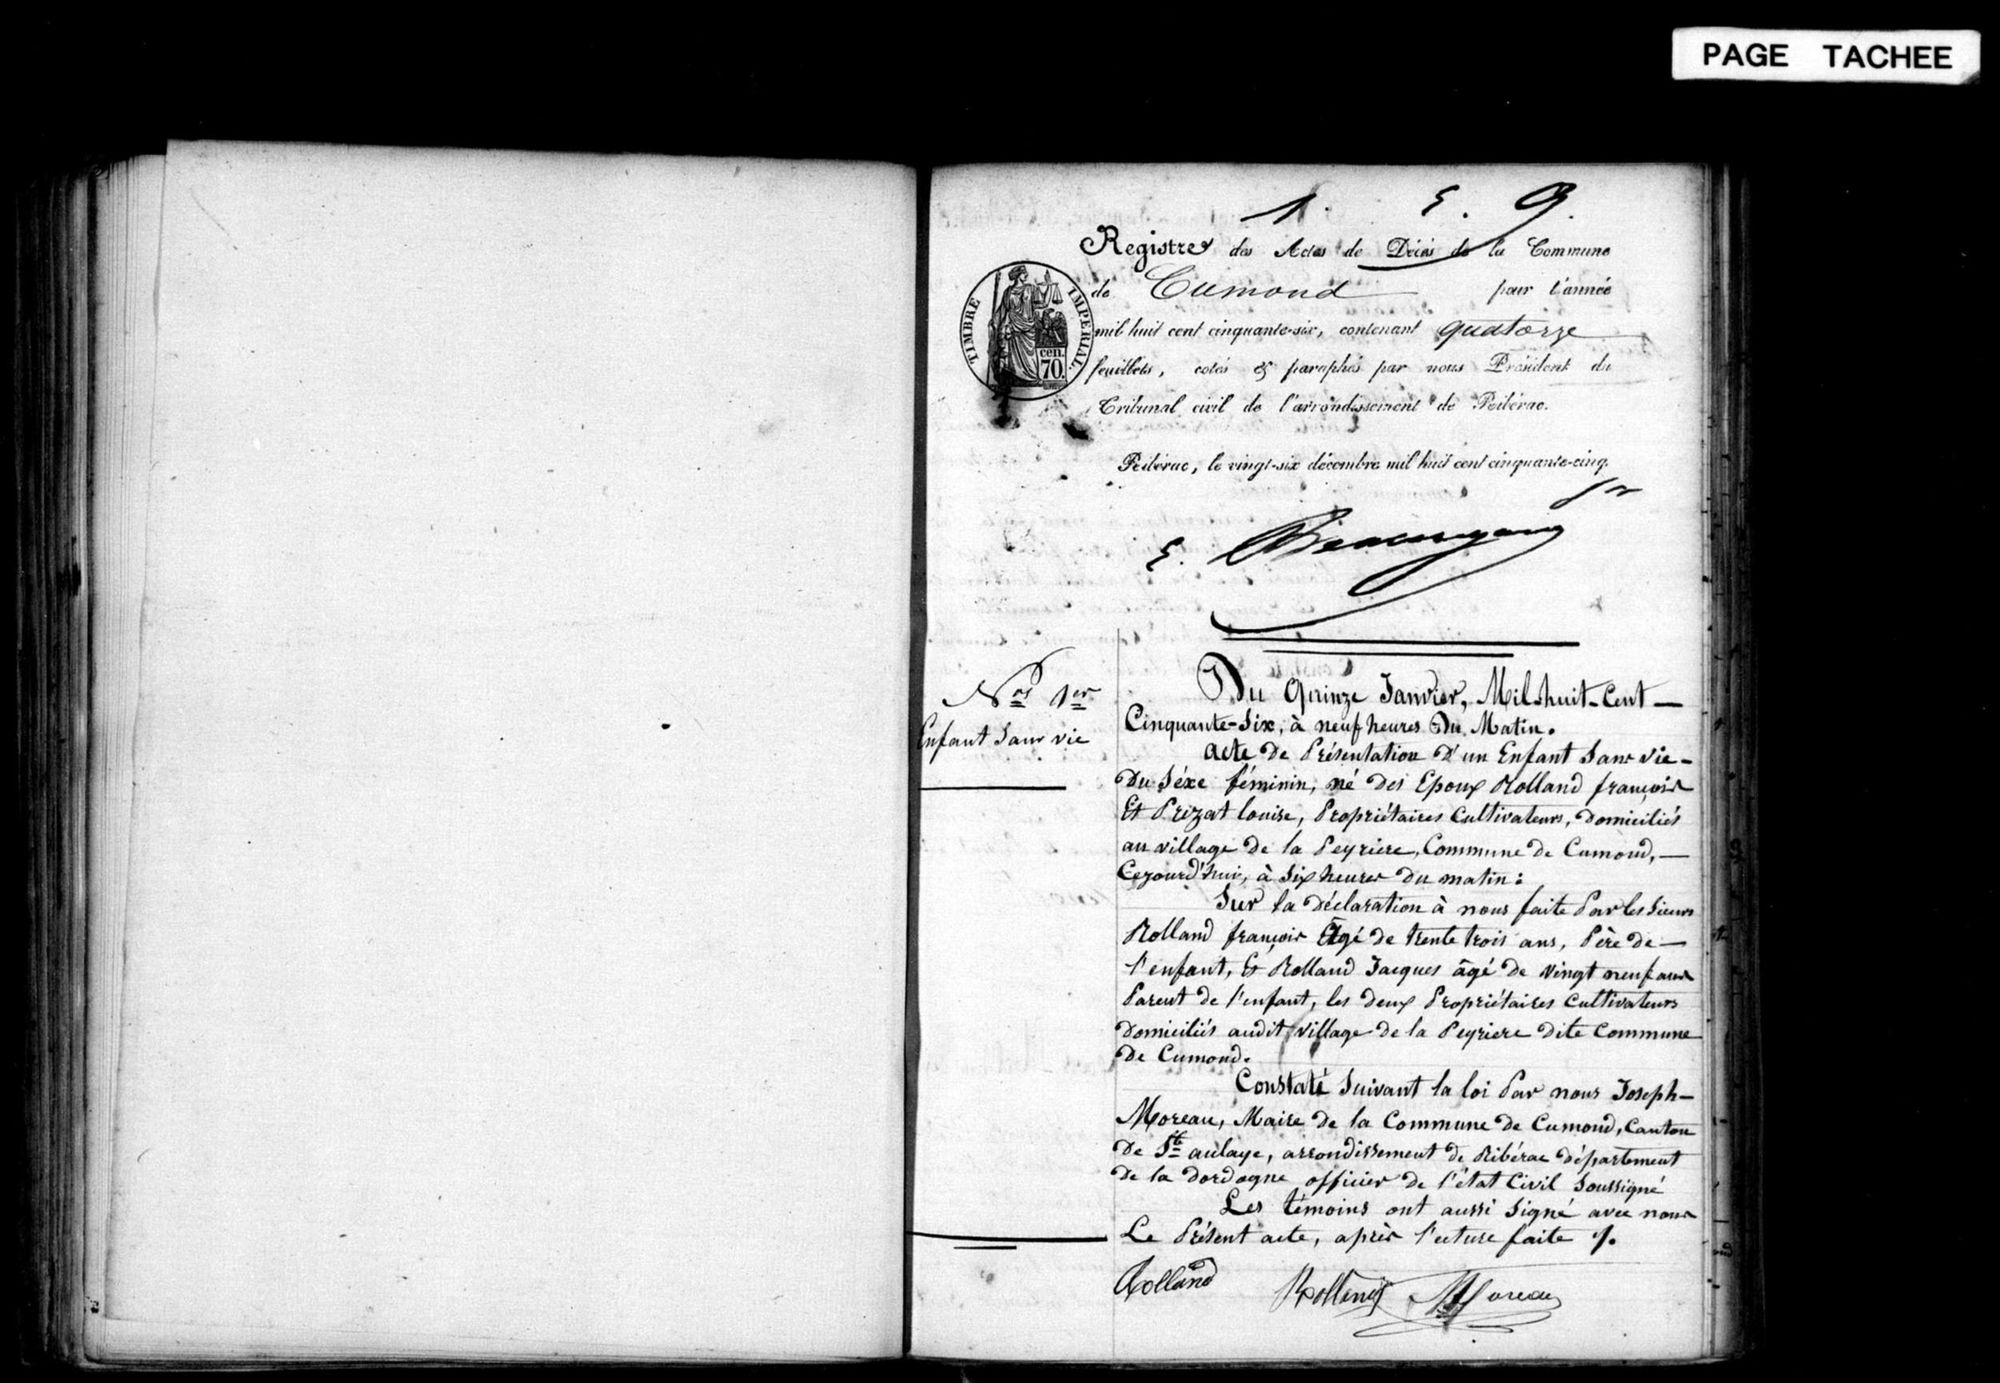 PAGE TACHEE
1. E. B.
Registre des Actes de Décès de la Commune
de Cumond pour l'année
mil huit cent cinquante-six, contenant quatorze
feuillets, cotés & paraphés par nous Président du
Tribunal civil de l'arrondissement de Ribérac.
TIMBRE IMPERIAL.
cen.
70.
Ribérac, le vingt-six décembre mil huit cent cinquante-cinq.
E.
Nos 1er
Enfant Sans vie
Du Quinze Janvier, Mil-huit-Cent
Cinquante-Six, à neuf heures Du Matin.
acte de Présentation D'un Enfant Sans vie
Du Séxe féminin, né des Epoux Rolland françois
Et Prizat louise, Propriétaires Cultivateurs, Domiciliés
au village de la Peyriere, Commune de Cumond,
Cejourd'hui, à Six heures Du matin :
Sur la Déclaration à nous faite Par les Sieurs
Rolland françois Agé de trente trois ans, Père de
l'enfant, Et Rolland Jacques âgé de vingt neuf ans
Parent de l'enfant, les deux Propriétaires Cultivateurs
Domiciliés audit village de la Peyriere dite Commune
De Cumond.
Constaté Suivant la loi Par nous Joseph
Moreau, Maire de la Commune de Cumond, Canton
De Ste aulaye, arrondissement de Ribérac département
De la dordogne officier de l'état Civil Soussigné
Les témoins ont aussi Signé avec nous
Le Présent acte, après l'ecture faite /.
Rolland Rolland Moreau